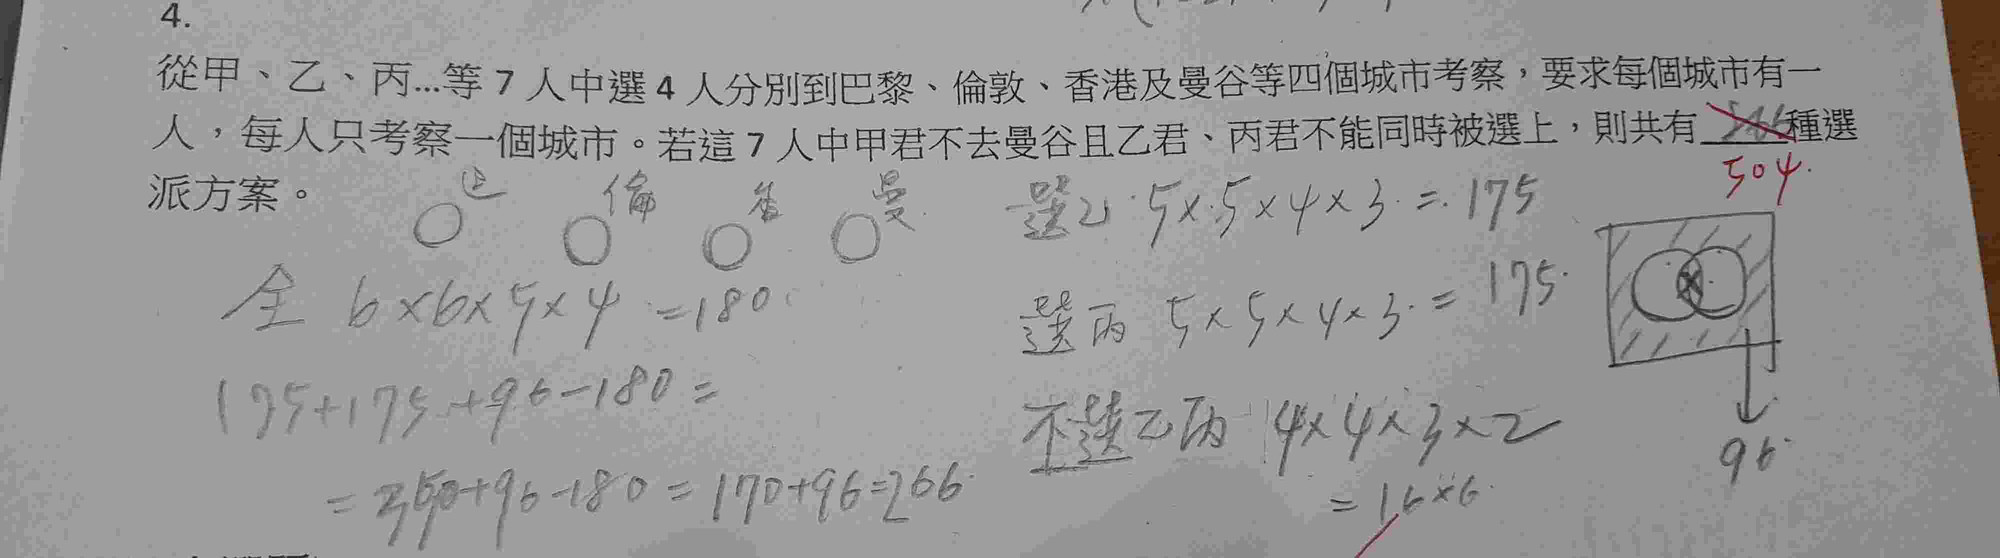 4.
從甲、乙、丙...等 7 人中選 4 人分別到巴黎、倫敦、香港及曼谷等四個城市考察，要求每個城市有一
人，每人只考察一個城市。若這 7 人中甲君不去曼谷且乙君、丙君不能同時被選上，則共有 種選
504.
派方案。
巴 倫 香 曼
選乙 5×5×4×3 = 175
全 6×6×5×4 = 180
選丙 5×5×4×3 = 175
175+175+96-180 =
不選乙丙 4×4×3×2
96
= 350+96-180 = 170+96=266
= 16×6